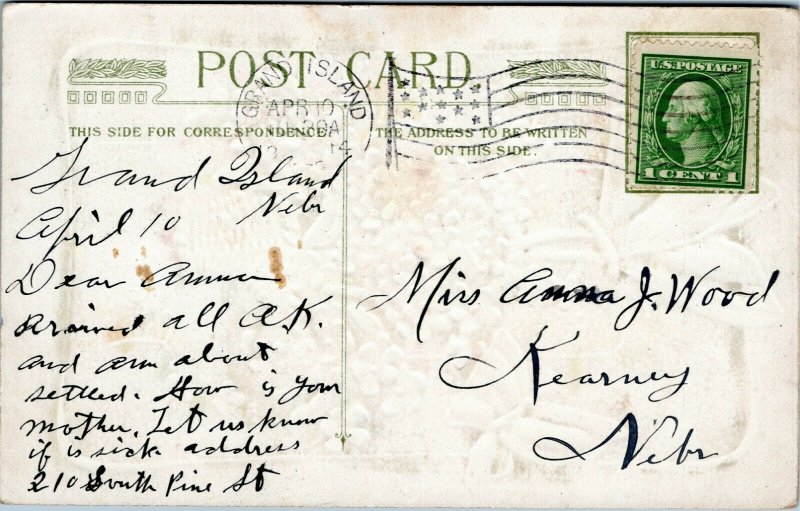 POST CARD
THIS SIDE FOR CORRESPONDENCE.
THE ADDRESS TO BE WRITTEN
ON THIS SIDE.
GRAND ISLAND
APR 10
14
U.S. POSTAGE
1 CENT 1
Grand Island
Nebr
April 10
Dear Anna
arrived all O.K.
and am about
settled. How is your
mother. Let us know
if is sick address
210 South Pine St
Miss Anna J. Wood
Kearney
Nebr